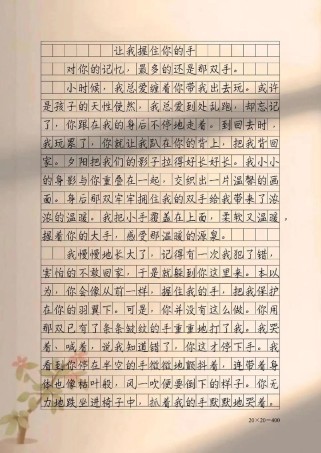 让我握住你的手
对你的记忆，最多的还是那双手。
小时候，我总爱缠着你带我出去玩。或许
是孩子的天性使然，我总爱到处乱跑，却忘记
了，你跟在我的身后不停地走着。到回去时，
我玩累了，你就让我趴在你的背上，把我背回
家。夕阳把我们的影子拉得好长好长。我小小
的身影与你重叠在一起，交织出一片温馨的画
面。身后那双牢牢握住我的双手给我带来了浓
浓的温暖。我把小手覆盖在上面，柔软又温暖。
握着你的大手，感受那温暖的源泉。
我慢慢地长大了，记得有一次我犯了错，
害怕的不敢回家，于是就躲到你这里来。本以
为，你会像从前一样，握住我的手，把我保护
在你的羽翼下。可是，你并没有这么做。你用
那双已有了条条皱纹的手重重地打了我。我哭
着、喊着，说我知道错了，你这才停下手。我
看到你停在半空的手微微地颤抖着，连带着身
体也像枯叶般，风一吹便要倒下的样子。你无
力地跌坐进椅子中，扒着我的手默默地哭着。
20×20=400